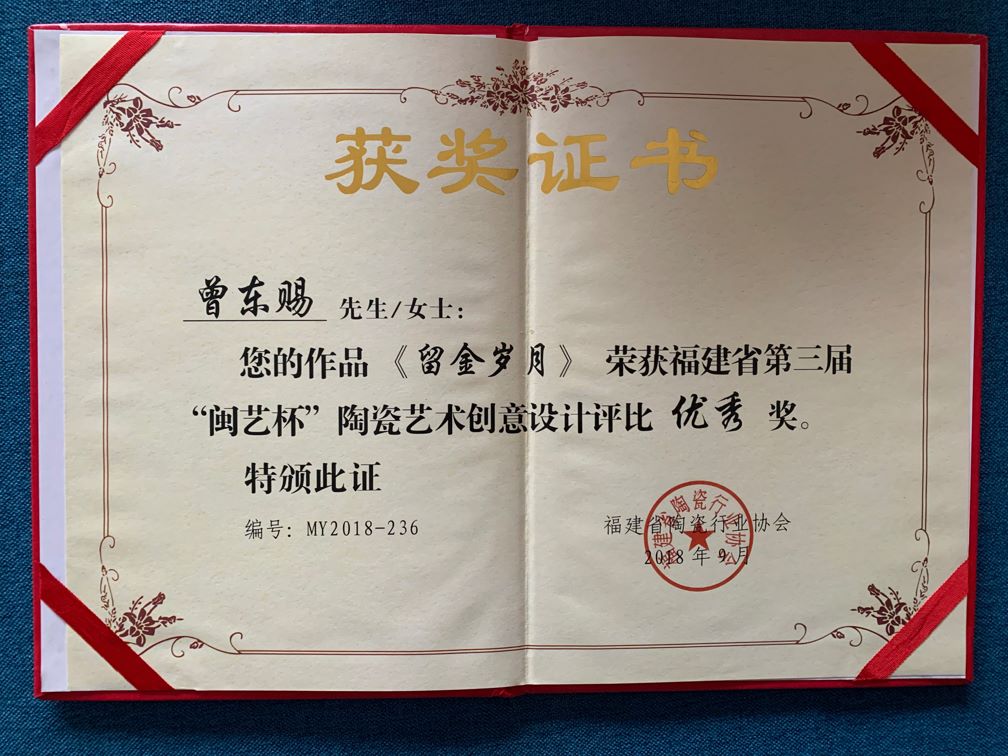 获奖证书
曾东赐 先生/女士:
您的作品《留金岁月》荣获福建省第三届
“闽艺杯”陶瓷艺术创意设计评比 优秀 奖。
特颁此证
编号: MY2018-236
福建省陶瓷行业协会
2018年9月
福建省陶瓷行业协会